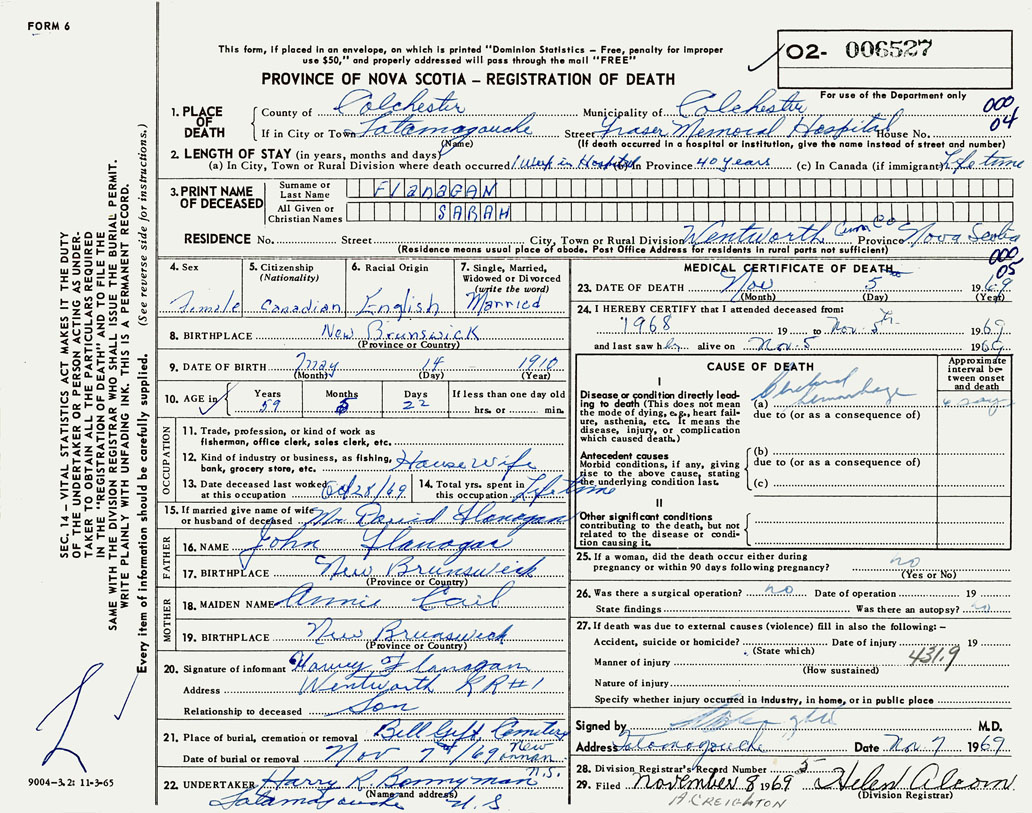 FORM 6
This form, if placed in an envelope, on which is printed "Dominion Statistics – Free, penalty for improper
use $50," and properly addressed will pass through the mail "FREE"
O2- 006527
For use of the Department only
PROVINCE OF NOVA SCOTIA – REGISTRATION OF DEATH
000
04
1. PLACE OF DEATH
County of Colchester Municipality of Colchester
If in City or Town Tatamagouche Street Fraser Memorial Hospital House No.
(Name) (If death occurred in a hospital or institution, give the name instead of street and number)
2. LENGTH OF STAY (in years, months and days)
(a) In City, Town or Rural Division where death occurred 1 Week in Hospital (b) In Province 40 years (c) In Canada (if immigrant) Life time
3. PRINT NAME OF DECEASED
Surname or Last Name FLANAGAN
All Given or Christian Names SARAH
RESIDENCE No. Street City, Town or Rural Division Wentworth Cum. Co Province Nova Scotia
(Residence means usual place of abode. Post Office Address for residents in rural parts not sufficient)
000
05
4. Sex Female
5. Citizenship (Nationality) Canadian
6. Racial Origin English
7. Single, Married, Widowed or Divorced (write the word) Married
8. BIRTHPLACE New Brunswick
(Province or Country)
9. DATE OF BIRTH May 14 1910
(Month) (Day) (Year)
10. AGE in Years 59 Months 5 Days 22 If less than one day old hrs. or min.
OCCUPATION
11. Trade, profession, or kind of work as
fisherman, office clerk, sales clerk, etc.
12. Kind of industry or business, as fishing,
bank, grocery store, etc. House wife
13. Date deceased last worked at this occupation Oct 28/69 14. Total yrs. spent in this occupation Life time
15. If married give name of wife
or husband of deceased Mr. David Flanagan
FATHER
16. NAME John Flanagan
17. BIRTHPLACE New Brunswick
(Province or Country)
MOTHER
18. MAIDEN NAME Annie Cail
19. BIRTHPLACE New Brunswick
(Province or Country)
20. Signature of informant Harvey Flanagan
Address Wentworth RR#1
Relationship to deceased Son
21. Place of burial, cremation or removal Bell Gift Cemetery
New Annan
N.S.
Date of burial or removal Nov 7 /69
22. UNDERTAKER Harry R. Bonnyman
(Name and address)
Tatamagouche N.S
MEDICAL CERTIFICATE OF DEATH
23. DATE OF DEATH Nov 5 1969
(Month) (Day) (Year)
24. I HEREBY CERTIFY that I attended deceased from:
1968 19 to Nov. 5th 1969
and last saw her alive on Nov. 5 1969
CAUSE OF DEATH
Approximate interval between onset and death
I
Disease or condition directly leading to death (This does not mean the mode of dying, e.g., heart failure, asthenia, etc. It means the disease, injury, or complication which caused death.)
(a) Cerebral Hemorrhage 6 days
due to (or as a consequence of)
Antecedent causes
Morbid conditions, if any, giving rise to the above cause, stating the underlying condition last.
(b)
due to (or as a consequence of)
(c)
II
Other significant conditions
contributing to the death, but not related to the disease or condition causing it.
25. If a woman, did the death occur either during
pregnancy or within 90 days following pregnancy? no
(Yes or No)
26. Was there a surgical operation? no Date of operation 19
State findings Was there an autopsy? no
27. If death was due to external causes (violence) fill in also the following: –
Accident, suicide or homicide? Date of injury 19
(State which) 431.9
Manner of injury
(How sustained)
Nature of injury
Specify whether injury occurred in industry, in home, or in public place
Signed by M.D.
Address Tatamagouche Date Nov. 7 1969
28. Division Registrar's Record Number 5
29. Filed November 8 1969 Helen Alcorn
(Division Registrar)
A CREIGHTON
SEC. 14 – VITAL STATISTICS ACT MAKES IT THE DUTY
OF THE UNDERTAKER OR PERSON ACTING AS UNDER-
TAKER TO OBTAIN ALL THE PARTICULARS REQUIRED
IN THE "REGISTRATION OF DEATH" AND TO FILE THE
SAME WITH THE DIVISION REGISTRAR WHO SHALL ISSUE THE BURIAL PERMIT.
WRITE PLAINLY WITH UNFADING INK. THIS IS A PERMANENT RECORD.
Every item of information should be carefully supplied. (See reverse side for instructions.)
9004-3.2: 11-3-65